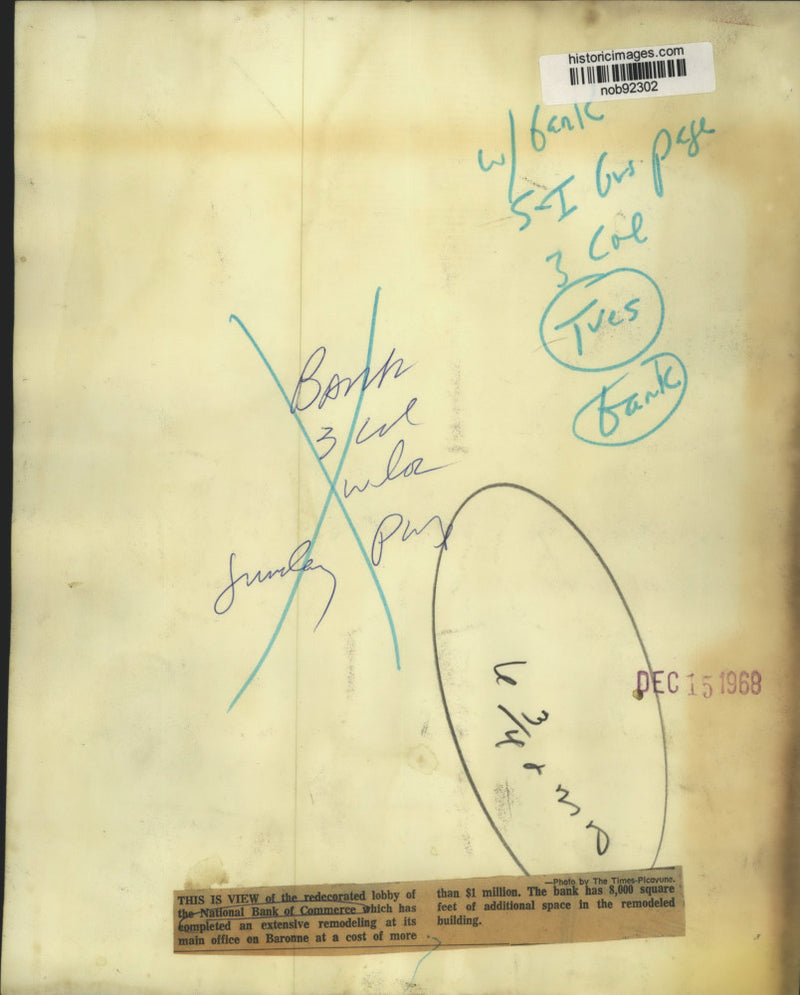 historicimages.com
nob92302
w/ bank
5-I Bus. page
3 Col
Tues
bank
Bank
3 col
Sunday
6 3/4
DEC 15 1968
—Photo by The Times-Picayune.
THIS IS VIEW of the redecorated lobby of
the National Bank of Commerce which has
completed an extensive remodeling at its
main office on Baronne at a cost of more
than $1 million. The bank has 8,000 square
feet of additional space in the remodeled
building.